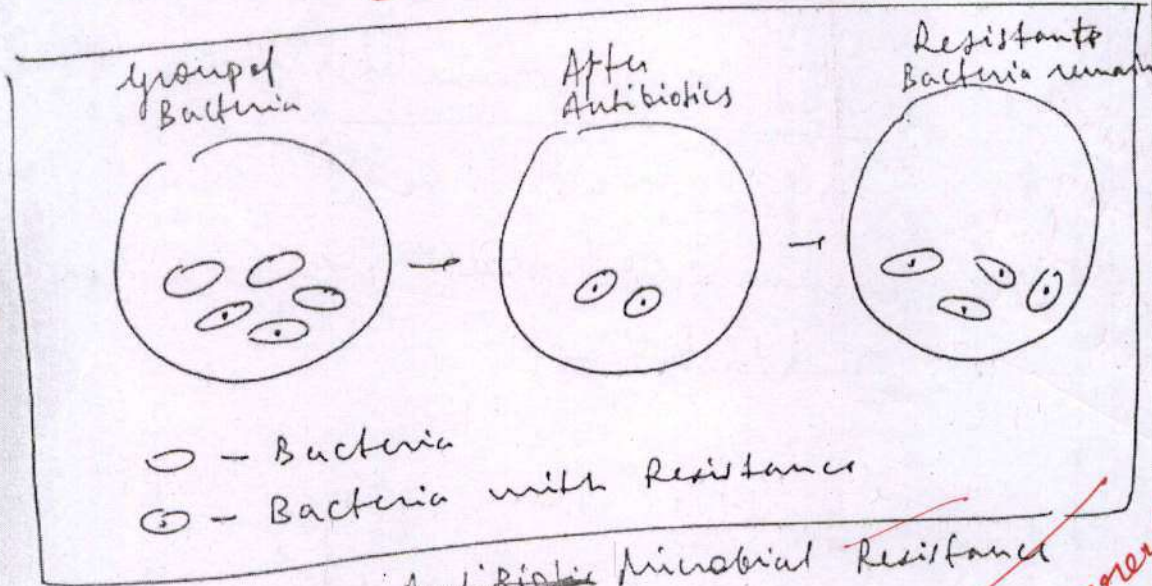 Group of
Bacteria
After
Antibiotics
Resistants
Bacteria remain
- Bacteria
- Bacteria with Resistance
Microbial Resistance